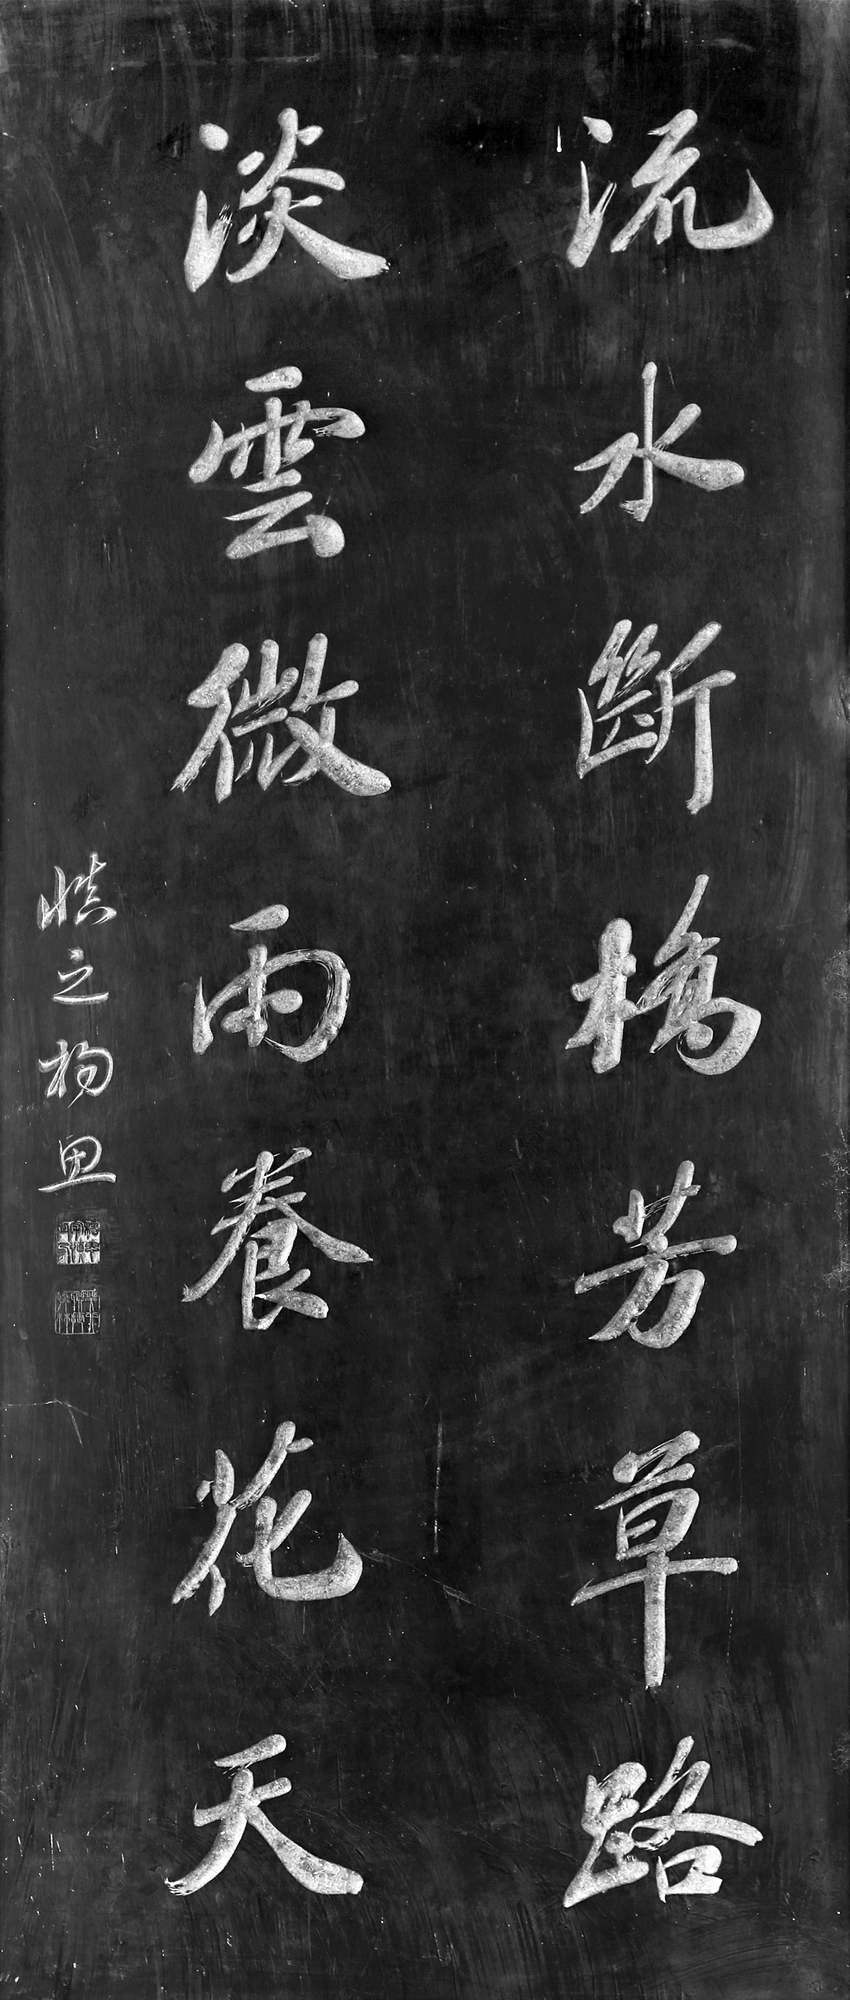 流水斷橋芳草路
淡雲微雨養花天
慎之楊思